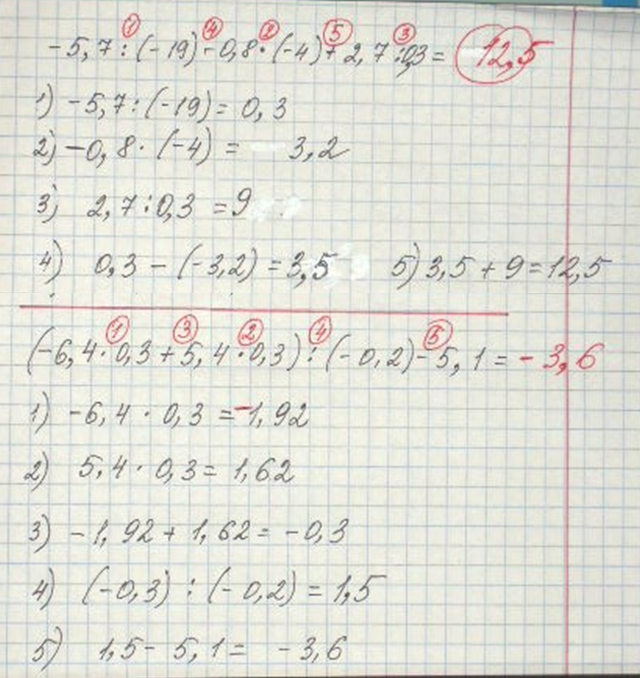 ① ④ ② ⑤ ③
-5,7:(-19)-0,8·(-4)+2,7:0,3= 12,5
1) -5,7:(-19)=0,3
2) -0,8·(-4)= 3,2
3) 2,7:0,3=9
4) 0,3-(-3,2)=3,5 5) 3,5+9=12,5
① ③ ② ④ ⑤
(-6,4·0,3+5,4·0,3):(-0,2)-5,1=-3,6
1) -6,4·0,3=-1,92
2) 5,4·0,3=1,62
3) -1,92+1,62=-0,3
4) (-0,3):(-0,2)=1,5
5) 1,5-5,1=-3,6